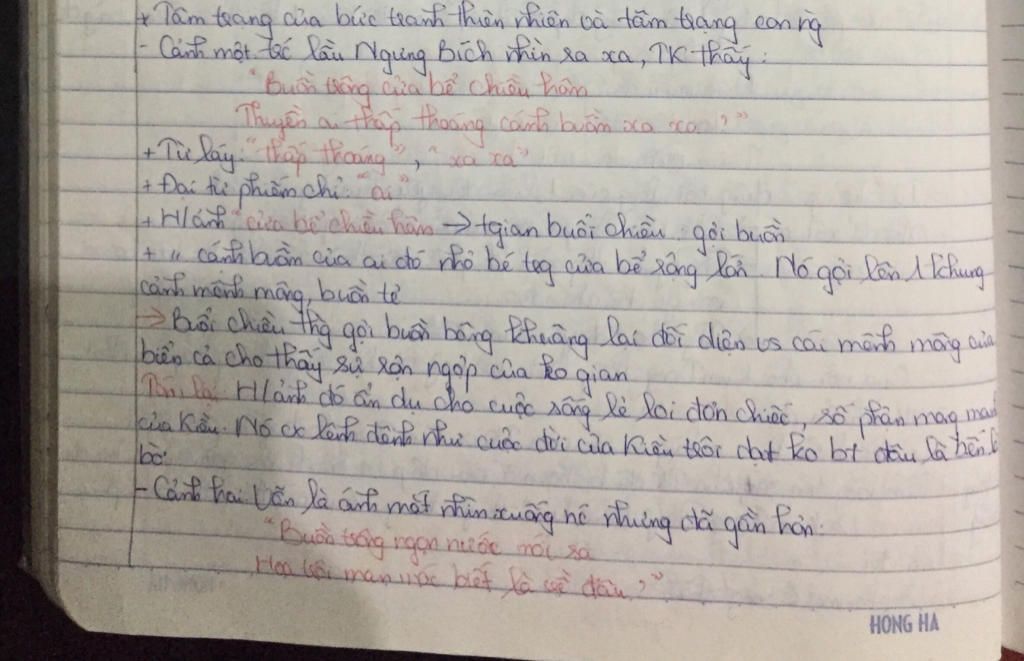 * Tâm trạng của bức tranh thiên nhiên và tâm trạng con ng
- Cảnh một: từ lầu Ngưng Bích nhìn ra xa, TK thấy:
"Buồn trông cửa bể chiều hôm
Thuyền ai thấp thoáng cánh buồm xa xa?"
+ Từ láy: "thấp thoáng", "xa xa"
+ Đại từ phiếm chỉ: "ai"
+ H/ảnh "cửa bể chiều hôm → tgian buổi chiều gợi buồn
+ " cánh buồm của ai đó nhỏ bé trg cửa bể rộng lớn. Nó gợi lên 1 khung
cảnh mênh mông, buồn tẻ
→ Buổi chiều thg gợi buồn bâng khuâng lại đối diện vs cái mênh mông của
biển cả cho thấy sự rợn ngợp của ko gian
Tóm lại: H/ảnh đó ẩn dụ cho cuộc sống lẻ loi đơn chiếc, số phận
của Kiều. Nó cx lênh đênh như cuộc đời của Kiều trôi dạt ko bt đâu là bến
bờ.
- Cảnh hai: Vẫn là ánh mắt nhìn xuống nc nhưng đã gần hơn:
"Buồn trông ngọn nước mới sa
Hoa trôi man mác biết là về đâu?"
HONG HA